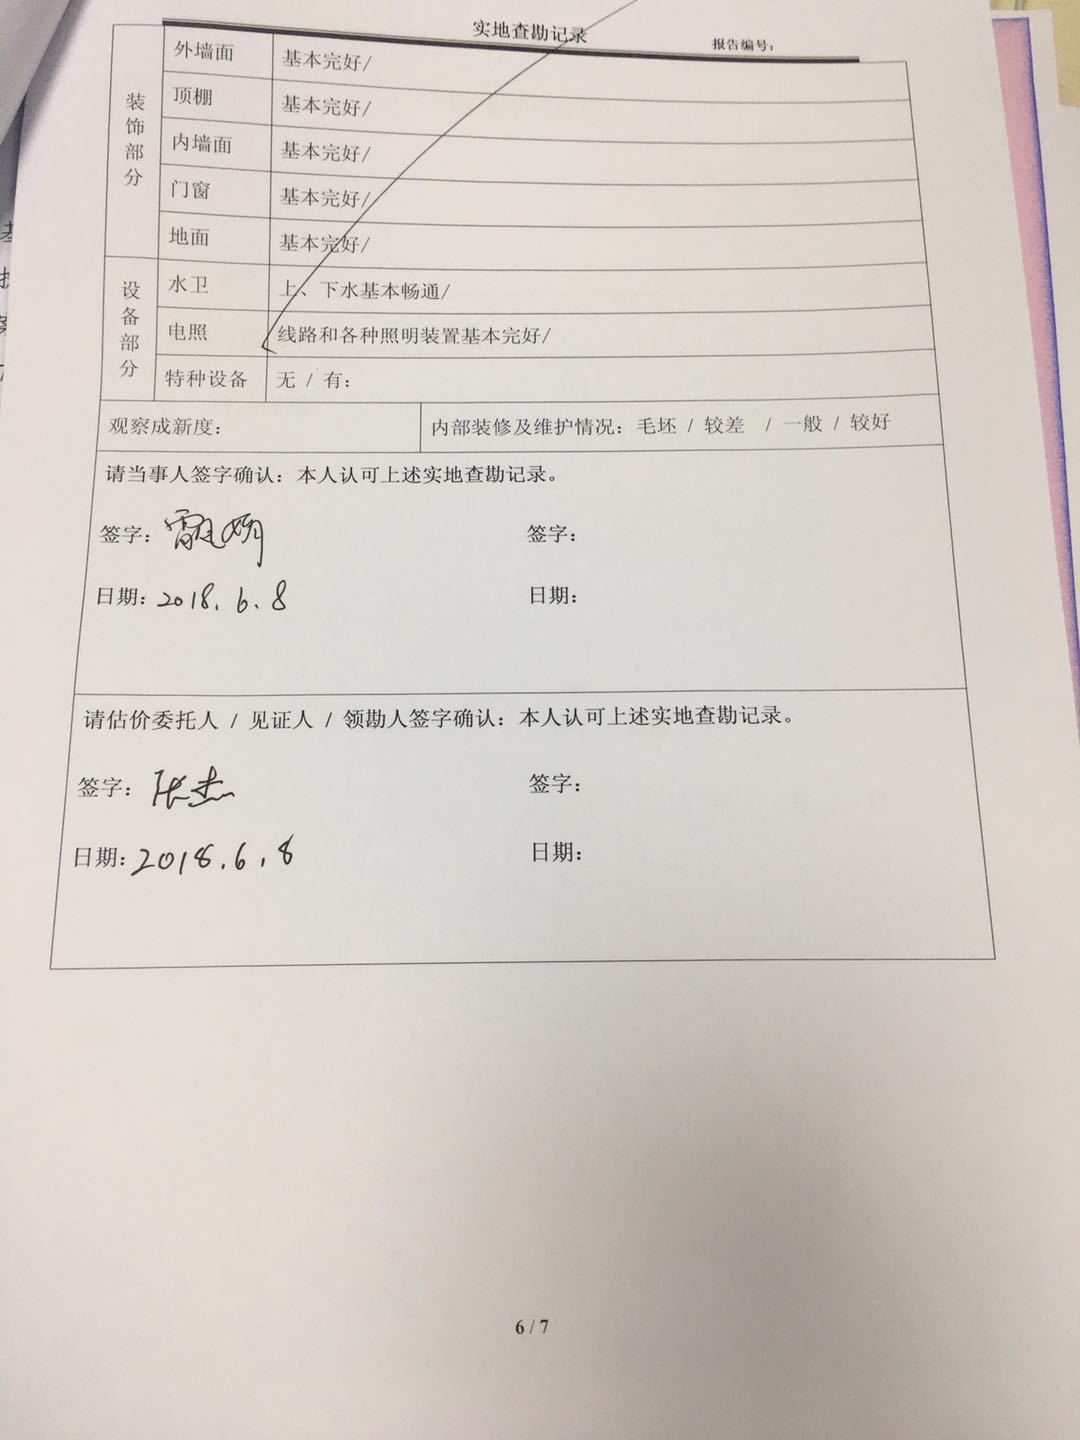 实地查勘记录
报告编号：
装饰部分
外墙面 基本完好/
顶棚 基本完好/
内墙面 基本完好/
门窗 基本完好/
地面 基本完好/
设备部分
水卫 上、下水基本畅通/
电照 线路和各种照明装置基本完好/
特种设备 无 / 有：
观察成新度： 内部装修及维护情况：毛坯 / 较差 / 一般 / 较好
请当事人签字确认：本人认可上述实地查勘记录。
签字： 签字：
日期：2018.6.8 日期：
请估价委托人 / 见证人 / 领勘人签字确认：本人认可上述实地查勘记录。
签字：张杰 签字：
日期：2018.6.8 日期：
6 / 7